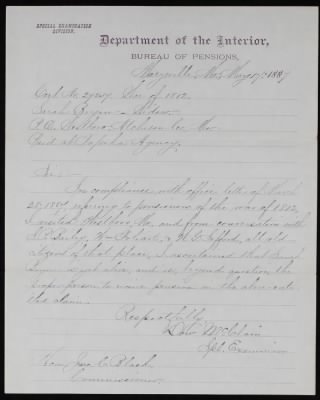 SPECIAL EXAMINATION
DIVISION.
Department of the Interior,
BUREAU OF PENSIONS,
Maryville, Mo, May 17, 188
Cert. No. War of 1812.
Sarah Bryan - Widow
P.O. Westboro Atchison Co. Mo
Paid at Topeka Agency.
Sir:
In compliance with office letter of March
25, 1884, referring to pensioners of the war of 1812,
I visited Westboro, Mo. and from conversation with
and all old
citizens of that place, I ascertained that Sarah
Bryan is yet alive, and is, beyond question, the
proper person to receive pension in the above cited
claim.
Respectfully
McClain
Spl. Examiner
Hon. C. Black
Commissioner